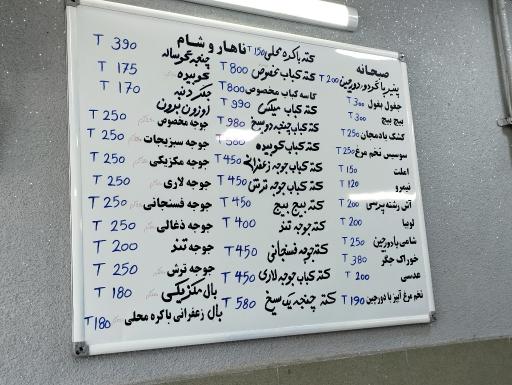 صبحانه
پنیر با گردو، دورچین T 200
جغول بغول T 300
بیج بیج T 300
کشک بادمجان T 250
سوسیس تخم مرغ T 250
املت T 150
نیمرو T 120
آش رشته پرسی T 200
لوبیا T 200
شامی با دورچین T 250
خوراک جگر T 380
عدسی T 200
تخم مرغ آبپز با دورچین T 190
ناهار و شام
کته با کره محلی T 150
کته کباب مخصوص T 800
کاسه کباب مخصوص T 800
کته کباب میکس T 990
کته کباب چنجه دو سیخ T 980
کته کباب کوبیده
کته کباب جوجه زعفرانی T 450
کته کباب جوجه ترش T 450
کته بیج بیج T 450
کته جوجه تند T 400
کته جوجه فسنجانی T 450
کته کباب جوجه لاری T 450
کته چنجه یک سیخ T 580
چنجه گوساله T 390
کوبیده T 175
جگر دنبه T 170
اوزون برون
جوجه مخصوص T 250
جوجه سبزیجات T 250
جوجه مکزیکی T 250
جوجه لاری T 250
جوجه فسنجانی T 250
جوجه ذغالی T 250
جوجه تند T 200
جوجه ترش T 250
بال مکزیکی T 180
بال زعفرانی با کره محلی T 180